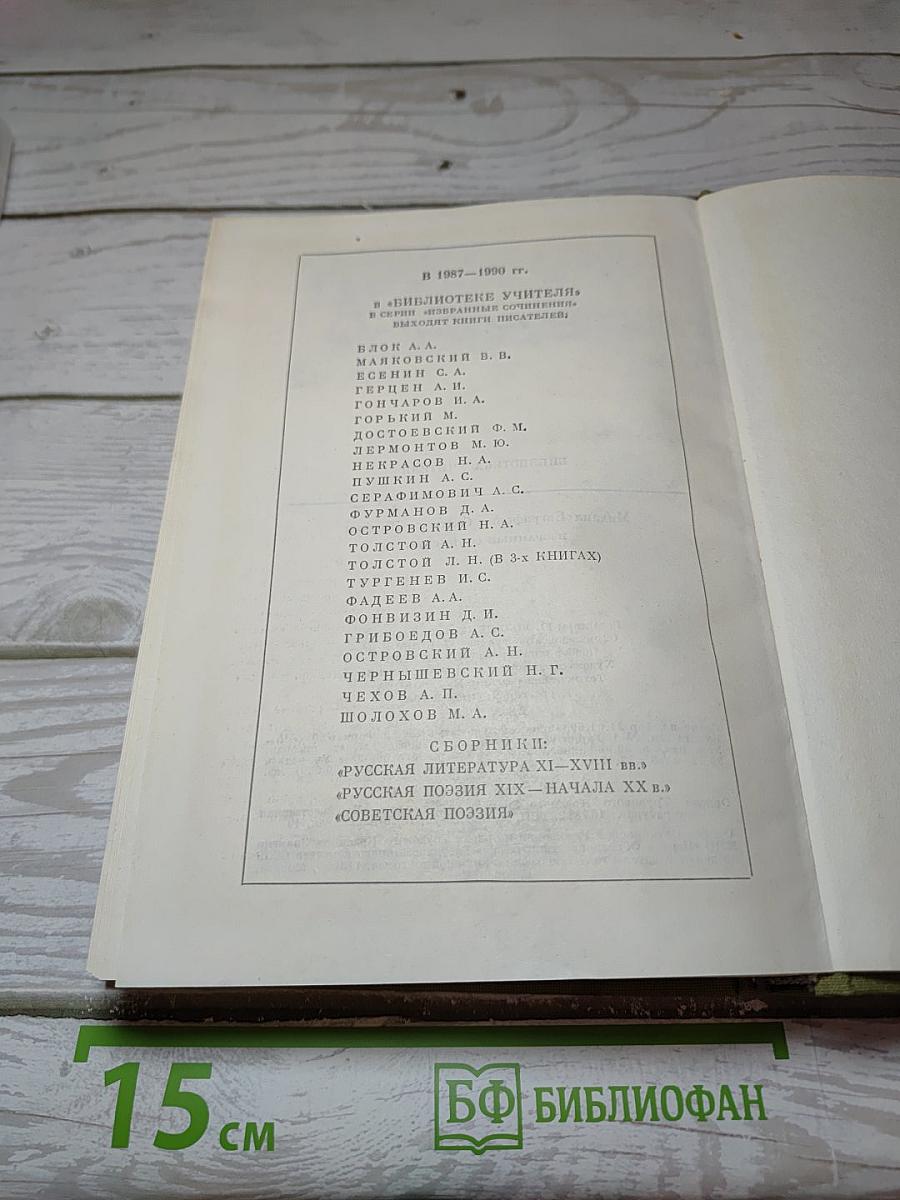 В 1987—1990 гг.
в «БИБЛИОТЕКЕ УЧИТЕЛЯ»
В СЕРИИ «ИЗБРАННЫЕ СОЧИНЕНИЯ»
ВЫХОДЯТ КНИГИ ПИСАТЕЛЕЙ:
БЛОК А. А.
МАЯКОВСКИЙ В. В.
ЕСЕНИН С. А.
ГЕРЦЕН А. И.
ГОНЧАРОВ И. А.
ГОРЬКИЙ М.
ДОСТОЕВСКИЙ Ф. М.
ЛЕРМОНТОВ М. Ю.
НЕКРАСОВ Н. А.
ПУШКИН А. С.
СЕРАФИМОВИЧ А. С.
ФУРМАНОВ Д. А.
ОСТРОВСКИЙ Н. А.
ТОЛСТОЙ А. Н.
ТОЛСТОЙ Л. Н. (В 3-х КНИГАХ)
ТУРГЕНЕВ И. С.
ФАДЕЕВ А. А.
ФОНВИЗИН Д. И.
ГРИБОЕДОВ А. С.
ОСТРОВСКИЙ А. Н.
ЧЕРНЫШЕВСКИЙ Н. Г.
ЧЕХОВ А. П.
ШОЛОХОВ М. А.
СБОРНИКИ:
«РУССКАЯ ЛИТЕРАТУРА XI—XVIII вв.»
«РУССКАЯ ПОЭЗИЯ XIX—НАЧАЛА XX в.»
«СОВЕТСКАЯ ПОЭЗИЯ»
15 см
БФ БИБЛИОФАН